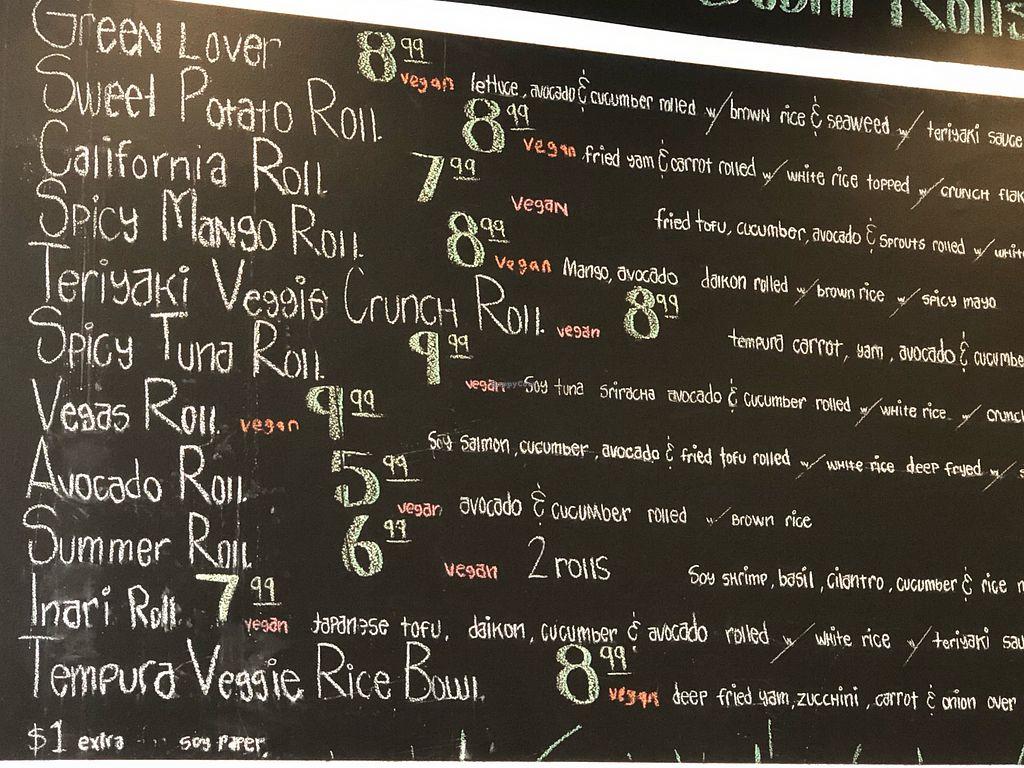 Sushi Rolls
Green Lover 8.99 vegan lettuce, avocado & cucumber rolled w/ brown rice & seaweed w/ teriyaki sauce
Sweet Potato Roll 8.99 vegan fried yam & carrot rolled w/ white rice topped w/ crunch flak
California Roll 7.99 vegan fried tofu, cucumber, avocado & sprouts rolled w/ white
Spicy Mango Roll 8.99 vegan Mango, avocado daikon rolled w/ brown rice w/ spicy mayo
Teriyaki Veggie Crunch Roll vegan 8.99 tempura carrot, yam, avocado & cucumbe
Spicy Tuna Roll 9.99 vegan Soy tuna sriracha avocado & cucumber rolled w/ white rice w/ crunc
Vegas Roll vegan 9.99 Soy salmon, cucumber, avocado & fried tofu rolled w/ white rice deep fryed w/ s
Avocado Roll 5.99 vegan avocado & cucumber rolled w/ brown rice
Summer Roll 6.99 vegan 2 rolls Soy shrimp, basil, cilantro, cucumber & rice n
Inari Roll 7.99 vegan Japanese tofu, daikon, cucumber & avocado rolled w/ white rice w/ teriyaki sau
Tempura Veggie Rice Bowl 8.99 vegan deep fried yam, zucchini, carrot & onion over
$1 extra soy paper